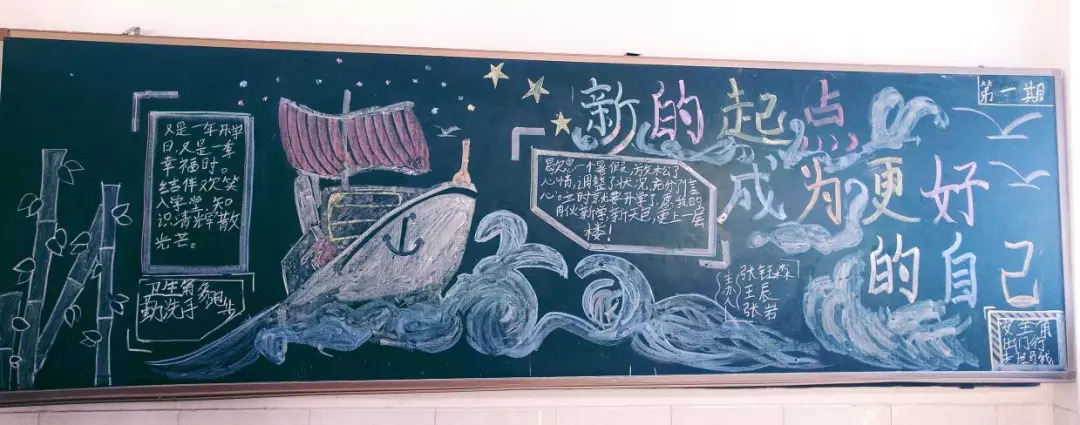 又是一年开学
日，又是一季
幸福时。
结伴欢笑
入学堂，知
识清辉散
光芒。
卫生角
勤洗手
新的起点
成为更好
的自己
第一期
歇息一个暑假，放松了
心情，调整了状况，充分了信
心。立时就要开学了，愿我的
朋伙新学新天包，更上一层
楼！
主办人
张钰森
王辰
张岩
安全角
出门行